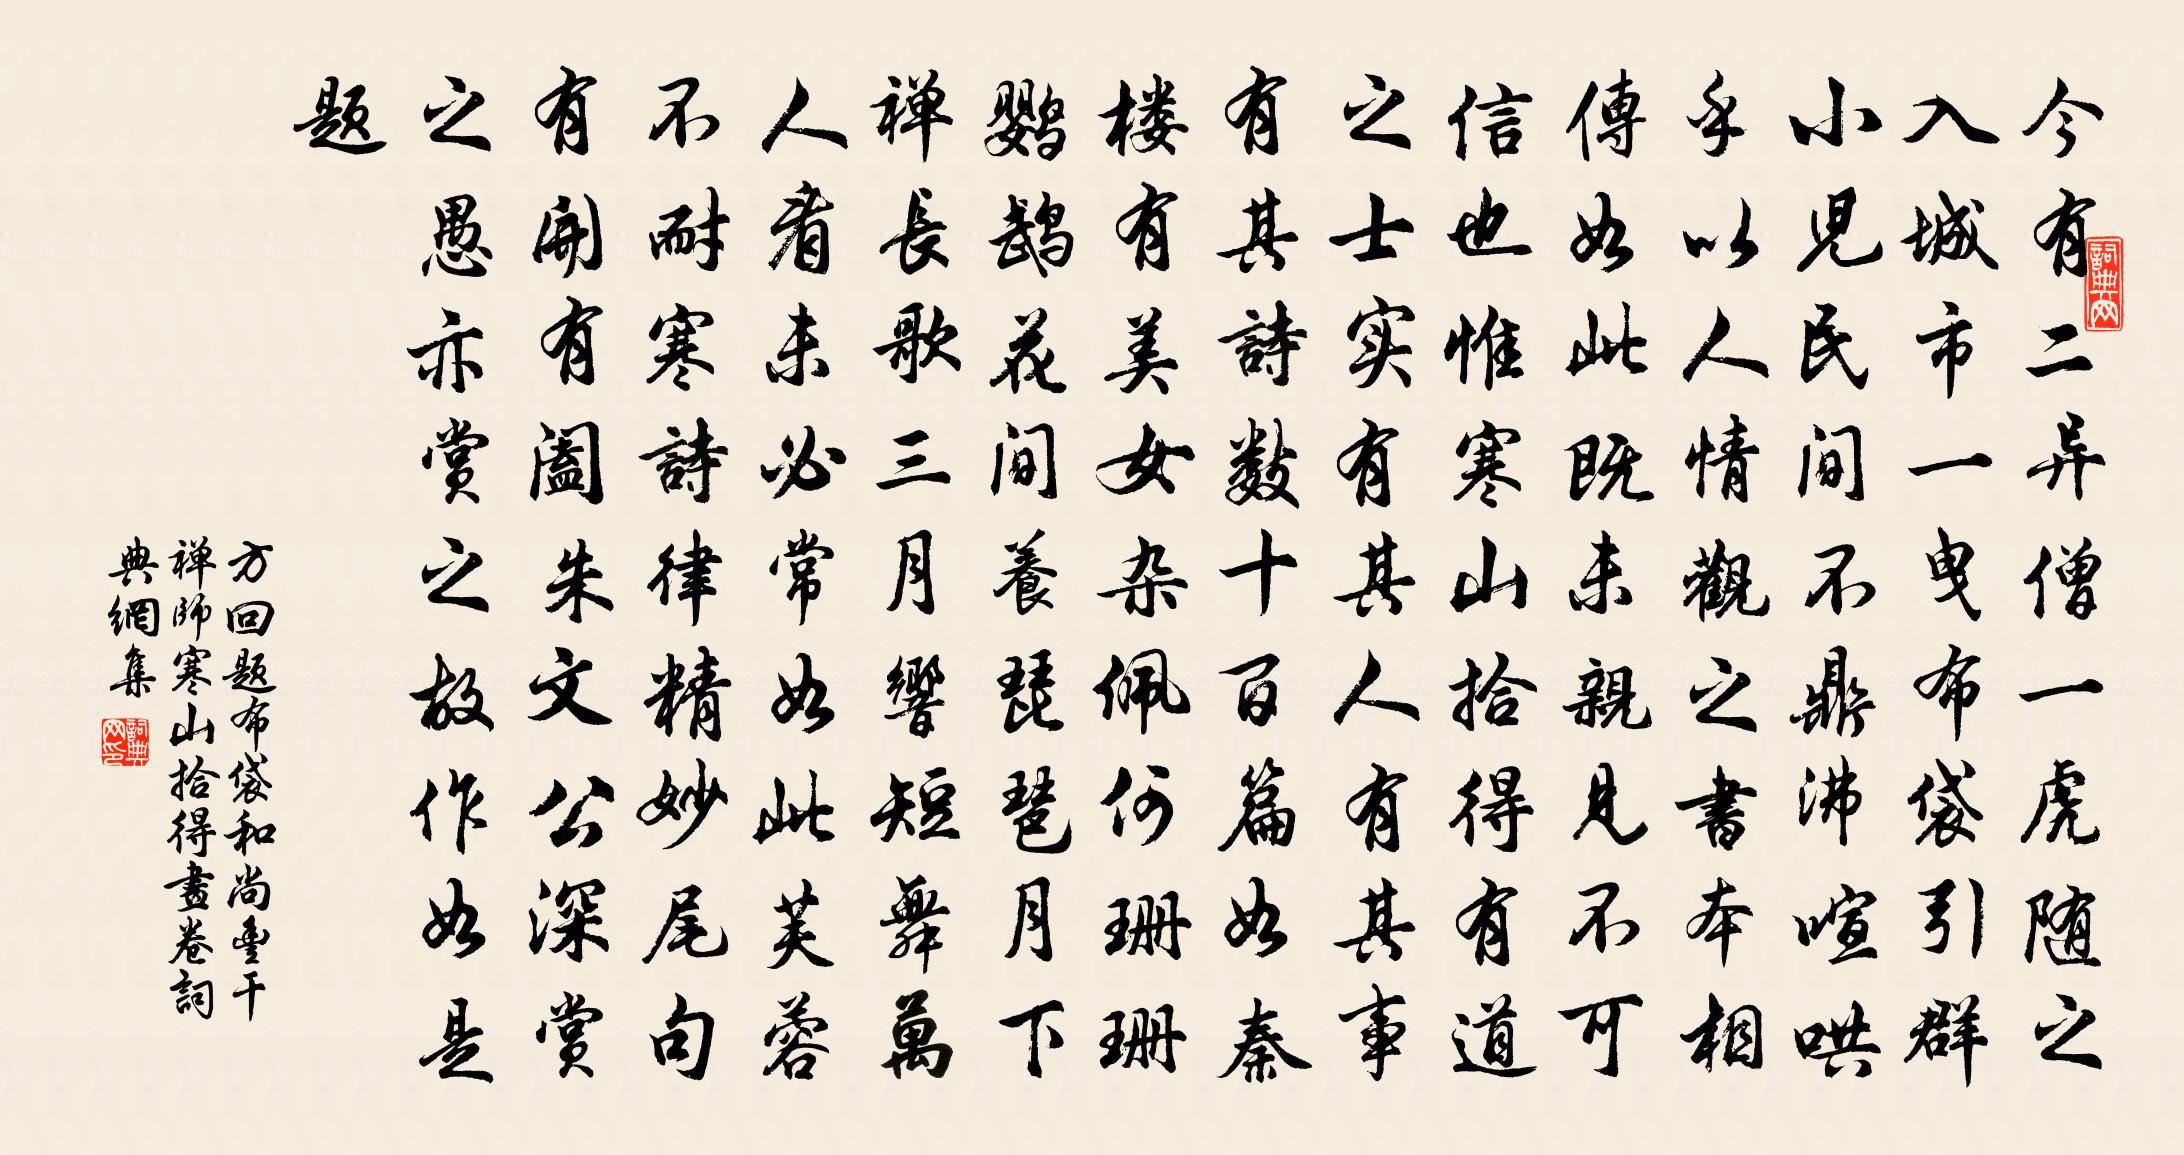 今有二异僧一虎随之
入城市一曳布袋引群
小児民间不鼎沸喧哄
乎以人情觀之書本相
傳如此既未親見不可
信也惟寒山拾得有道
之士实有其人有其事
有其詩数十百篇如秦
楼有美女杂佩何珊珊
鹦鹉花间養琵琶月下
禅長歌三月響短舞萬
人看未必常如此芙蓉
不耐寒詩律精妙尾句
有開有阖朱文公深賞
之愚亦賞之故作如是
题
方回题布袋和尚豊干
禅師寒山拾得畫卷詞
典網集
詞典网
詞典网印